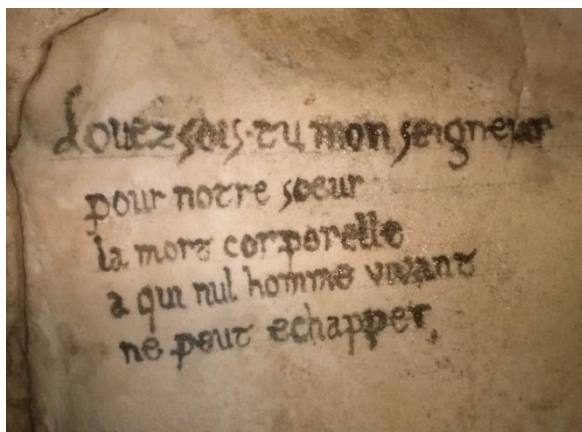 Louez sois-tu mon seigneur
pour notre soeur
la mort corporelle
a qui nul homme vivant
ne peut echapper.